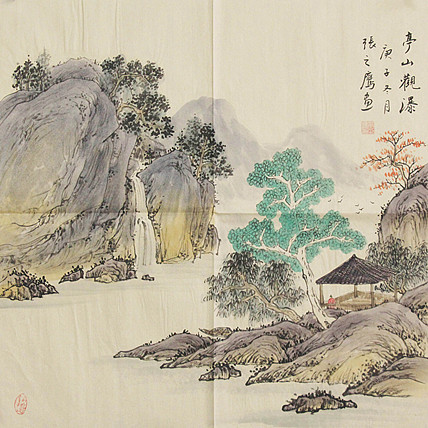 亭山觀瀑
庚子冬月
張之鷹畫